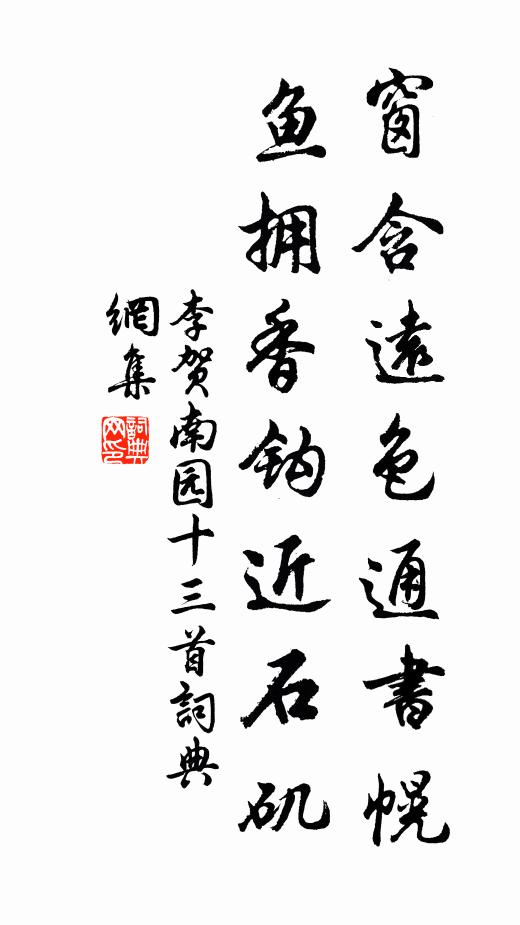 窗含遠色通書幌
鱼拥香钩近石矶
李贺南园十三首詞典
網集
詞典
网印